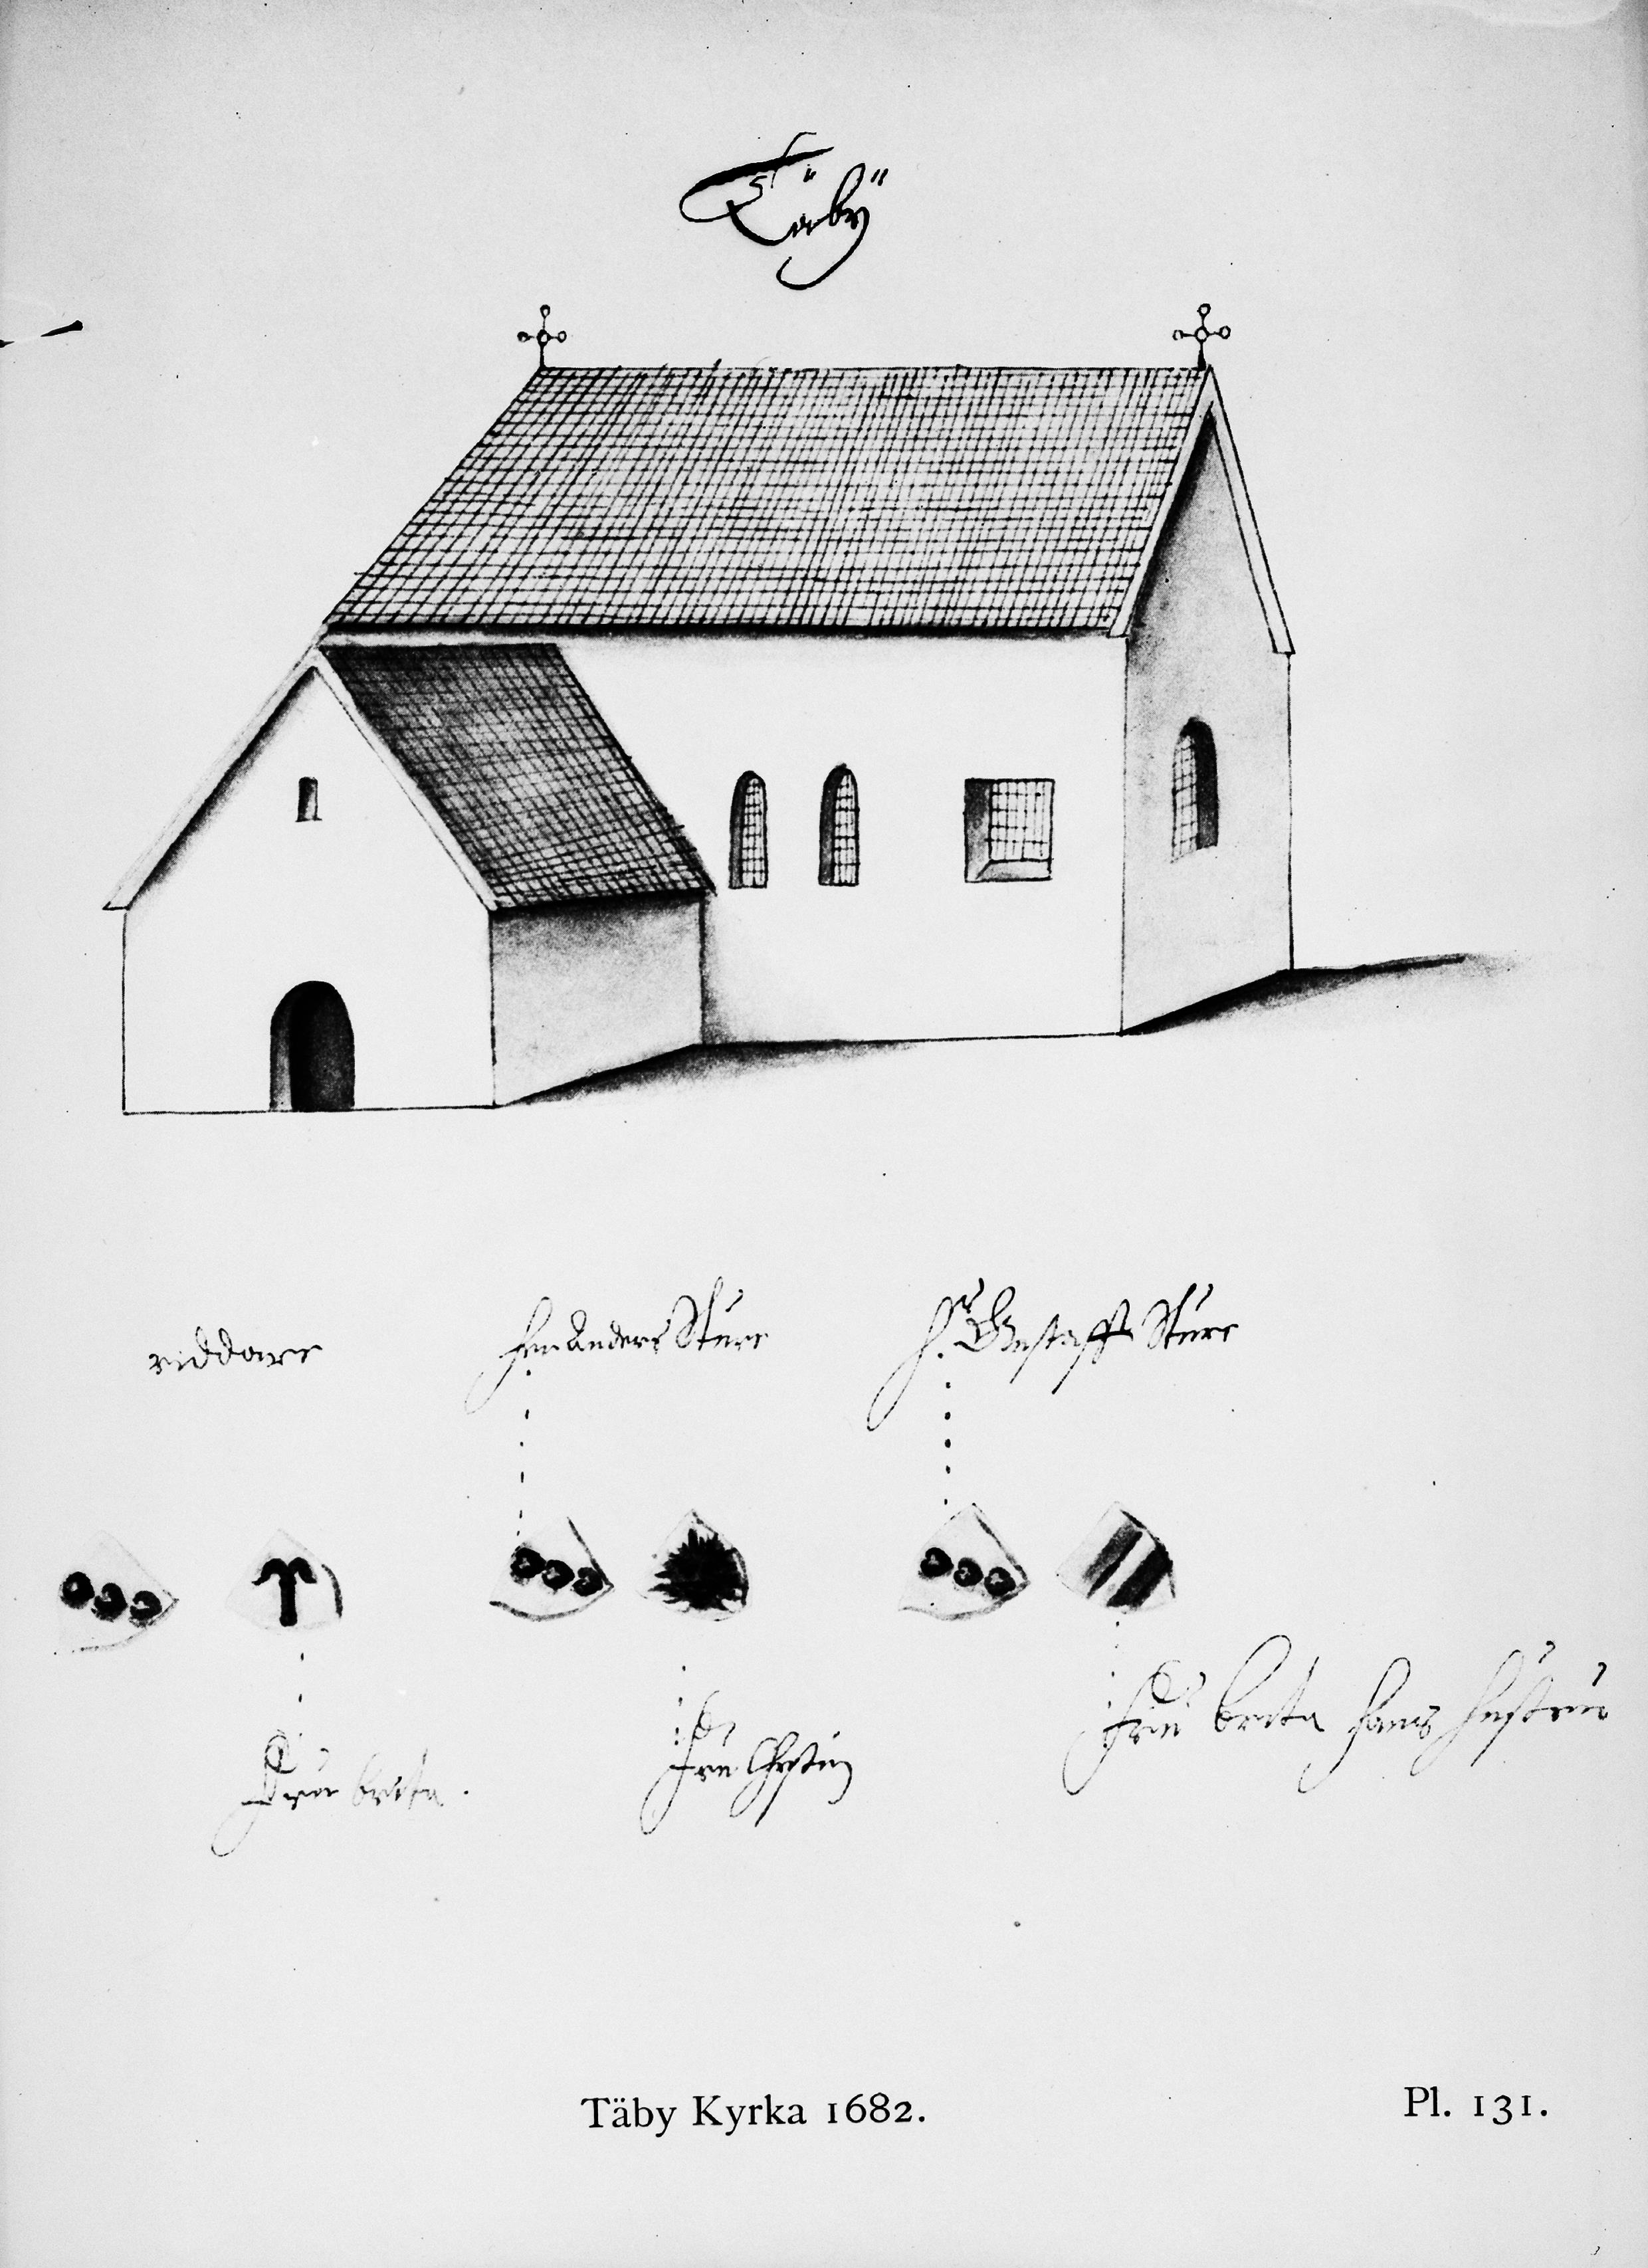 Täbÿ
riddare
Her Anders Sture
H. Gustaff Sture
Fru brita.
Fru Christin
Fru brita hans hustru
Täby Kyrka 1682.
Pl. 131.